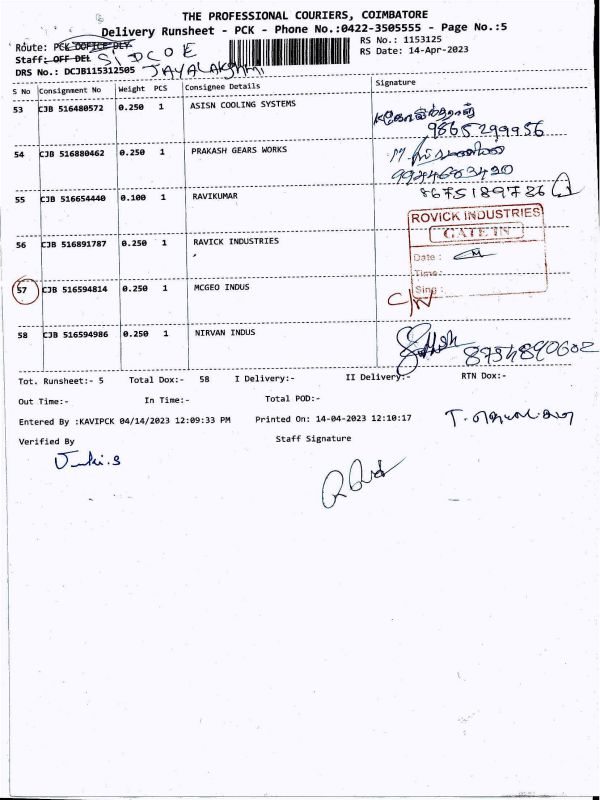 THE PROFESSIONAL COURIERS, COIMBATORE
Delivery Runsheet - PCK - Phone No.:0422-3505555 - Page No.:5
Route: PCK OOFICE DEL SIDCOE RS No.: 1153125
Staff: OFF DEL RS Date: 14-Apr-2023
DRS No.: DCJB115312505 JAYALAKSHMI
S No Consignment No Weight PCS Consignee Details Signature
53 CJB 516480572 0.250 1 ASISN COOLING SYSTEMS
9865299956
54 CJB 516880462 0.250 1 PRAKASH GEARS WORKS
55 CJB 516654440 0.100 1 RAVIKUMAR 8675189786
ROVICK INDUSTRIES
GATE IN
56 CJB 516891787 0.250 1 RAVICK INDUSTRIES
Date :
Time:
57 CJB 516594814 0.250 1 MCGEO INDUS Sing :
58 CJB 516594986 0.250 1 NIRVAN INDUS
8754890602
Tot. Runsheet:- 5 Total Dox:- 58 I Delivery:- II Delivery:- RTN Dox:-
Out Time:- In Time:- Total POD:-
Entered By :KAVIPCK 04/14/2023 12:09:33 PM Printed On: 14-04-2023 12:10:17
Verified By Staff Signature